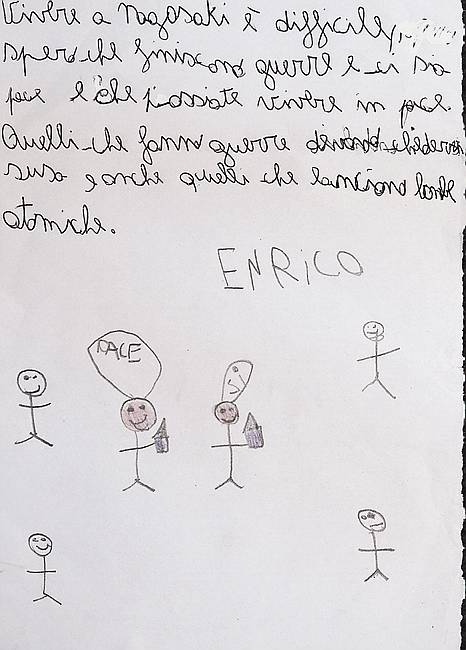 Vivere a Nagasaki è difficile,
spero che finiscono guerre e ci sia
pace e che possiate vivere in pace.
Quelli che fanno guerre devono chiedervi
scusa e anche quelli che lanciano bombe
atomiche.
ENRICO
PACE
SI